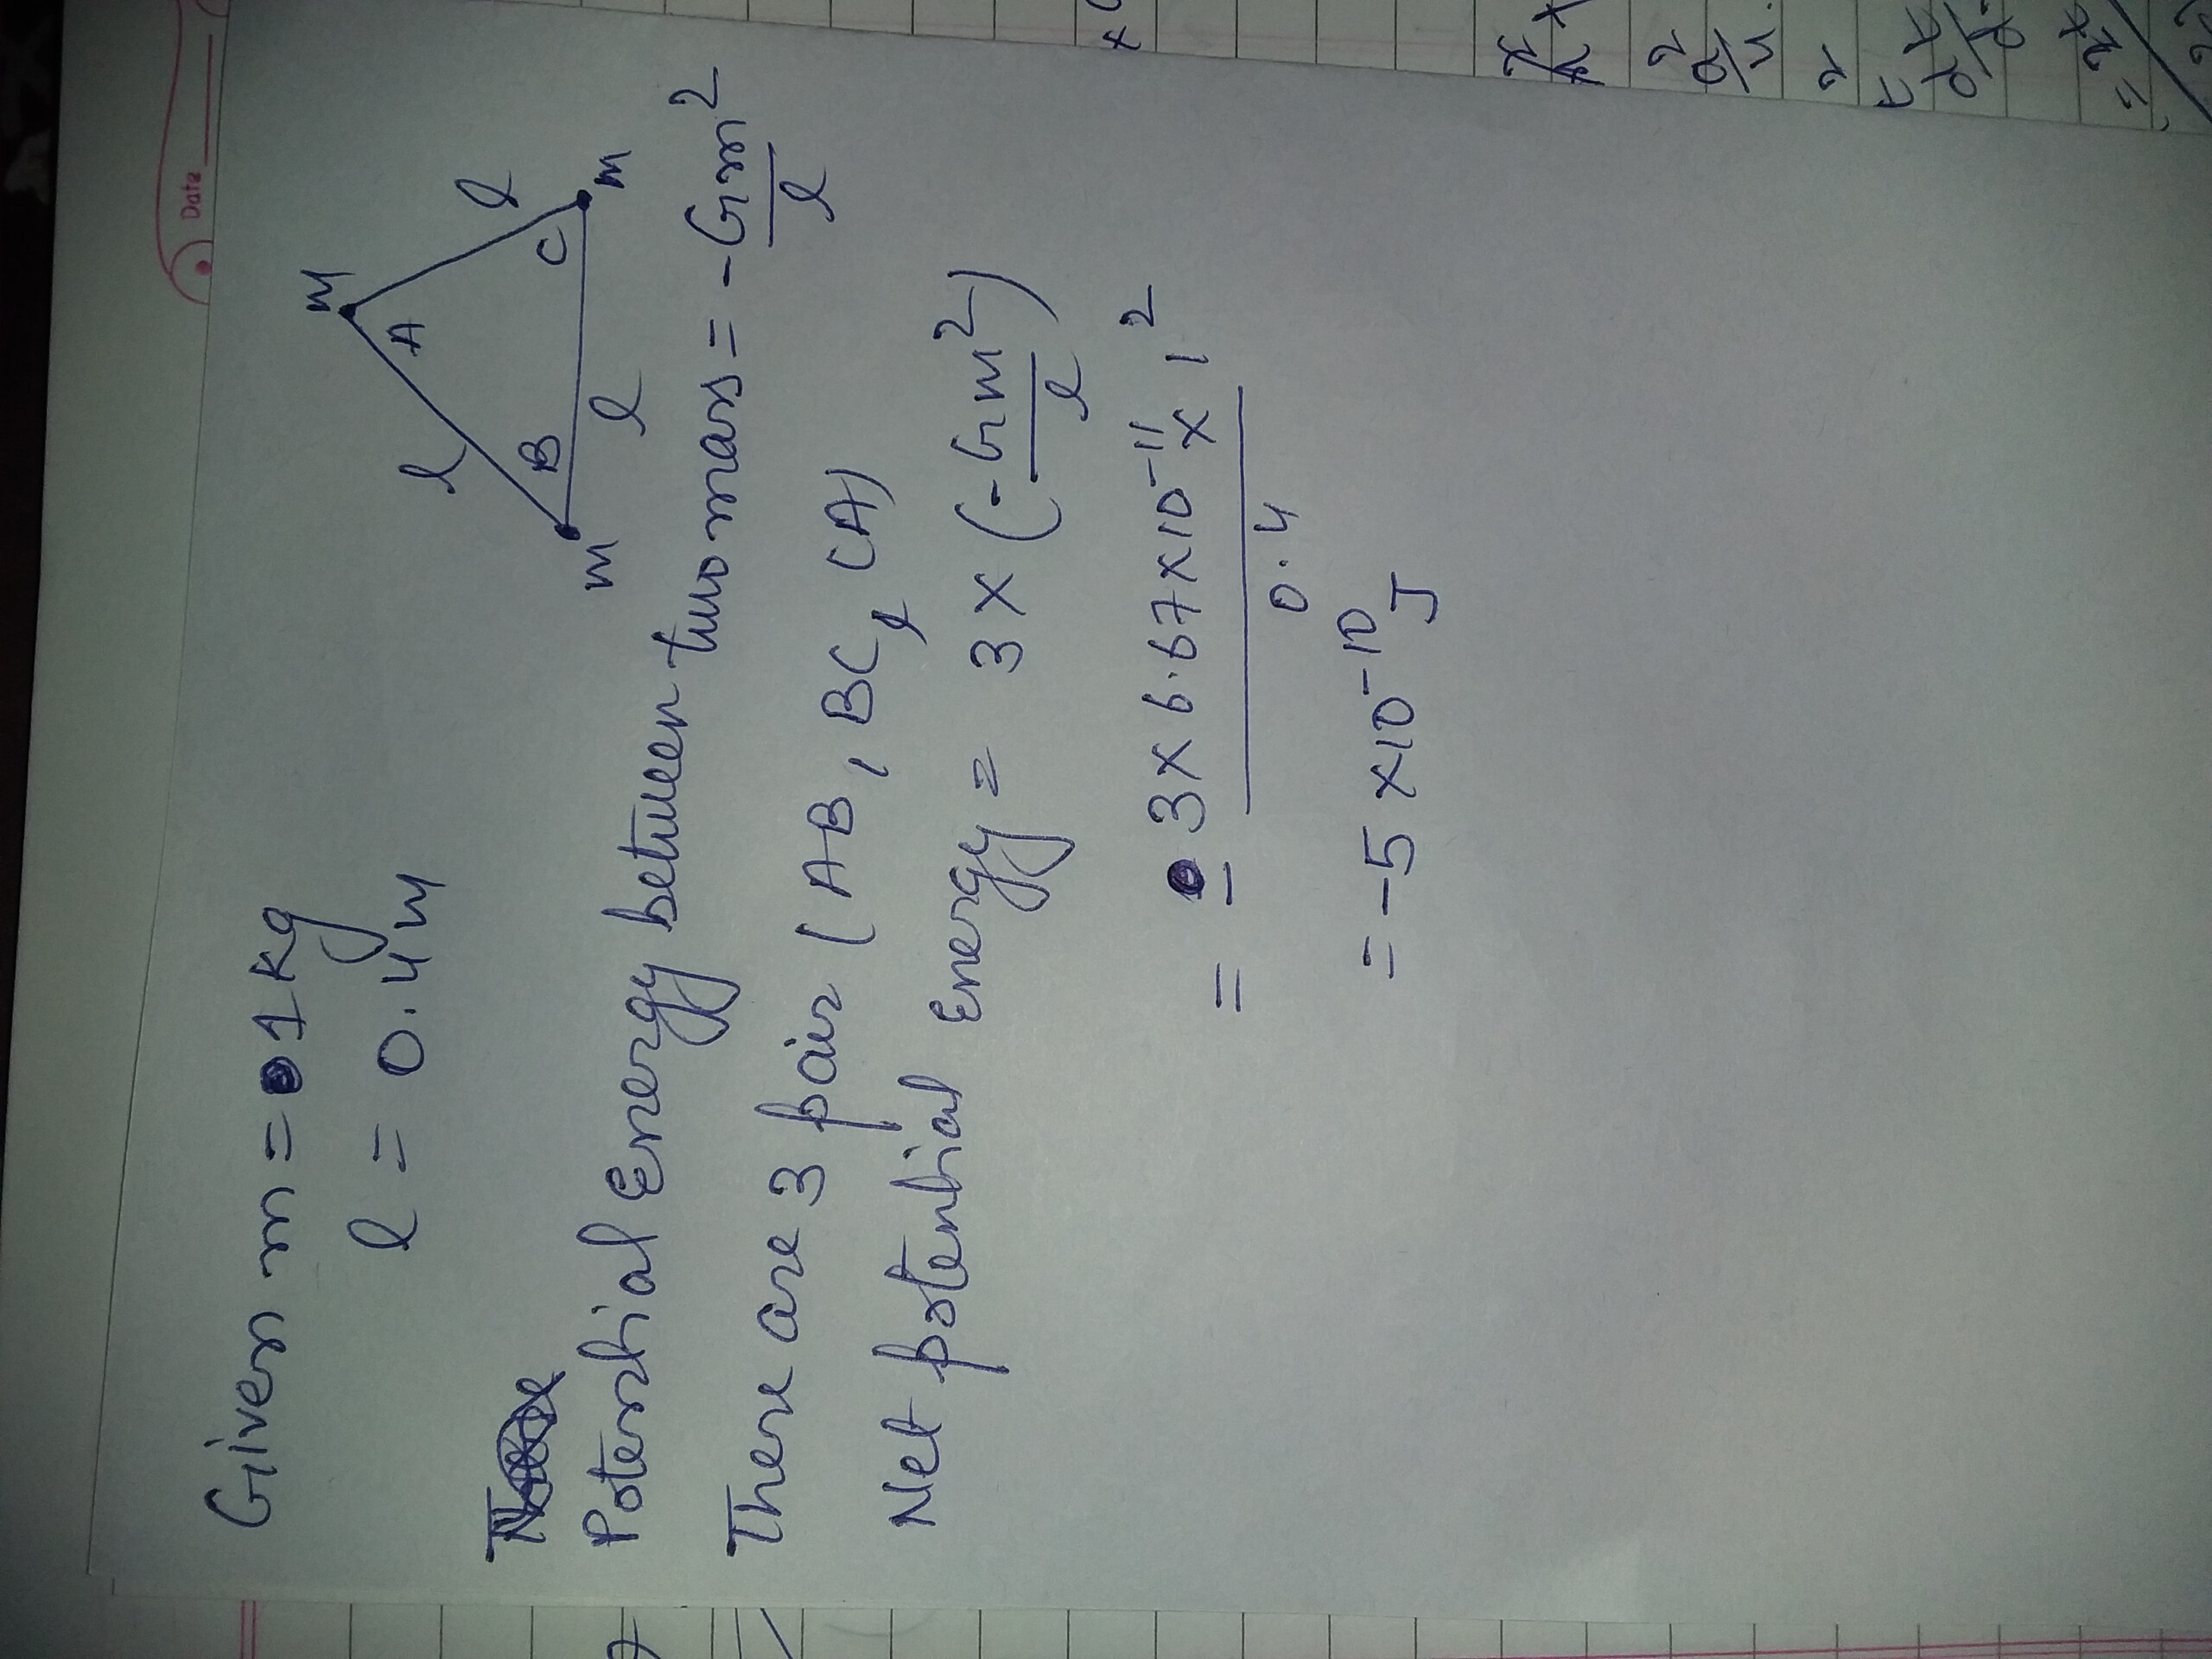 Date
Given m = 1 Kg
l = 0.4 m
m
A
l
l
B
C
m
l
m
Potential Energy between two mass = -Gm²/l
There are 3 pair (AB, BC, CA)
Net potential Energy = 3 × (-Gm²/l)
= - 3 × 6.67 × 10⁻¹¹ × 1² / 0.4
= -5 × 10⁻¹⁰ J